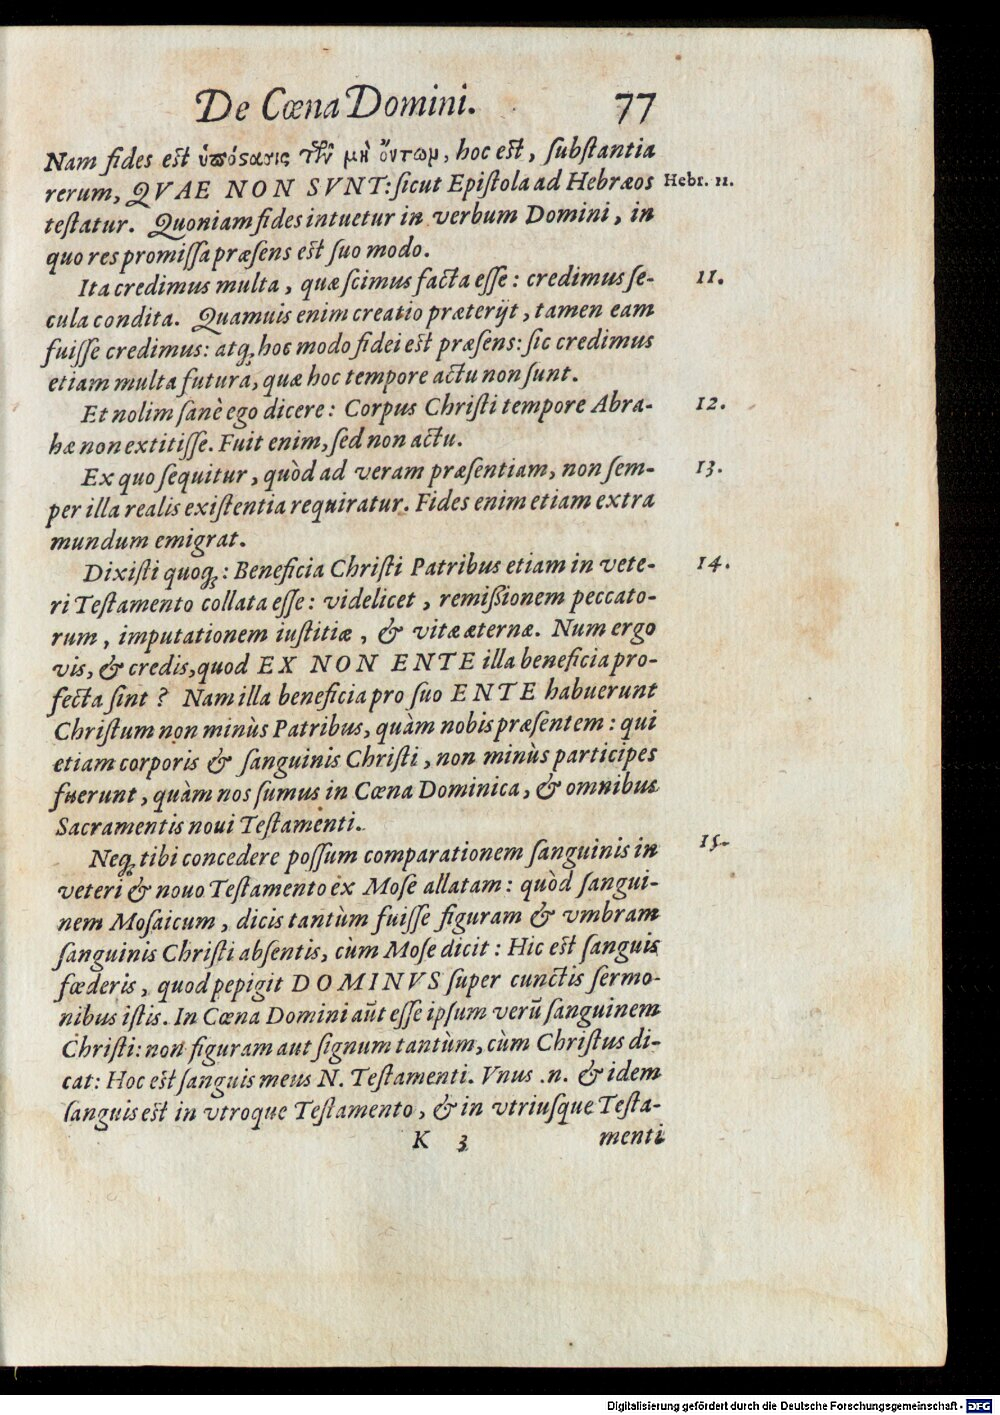 De Cœna Domini. 77
Nam fides est ὑπόστασις τῶν μὴ ὄντωμ, hoc est, ſubſtantia
rerum, QVAE NON SVNT: ſicut Epiſtola ad Hebræos Hebr. 11.
teſtatur. Quoniam fides intuetur in verbum Domini, in
quo res promiſſa præſens est ſuo modo.
Ita credimus multa, quæ ſcimus facta eſſe: credimus ſe- 11.
cula condita. Quamuis enim creatio præterijt, tamen eam
fuiſſe credimus: atq; hoc modo fidei est præſens: ſic credimus
etiam multa futura, quæ hoc tempore actu non ſunt.
Et nolim ſanè ego dicere: Corpus Chriſti tempore Abra- 12.
hæ non extitiſſe. Fuit enim, ſed non actu.
Ex quo ſequitur, quòd ad veram præſentiam, non ſem- 13.
per illa realis exiſtentia requiratur. Fides enim etiam extra
mundum emigrat.
Dixiſti quoq;: Beneficia Chriſti Patribus etiam in vete- 14.
ri Teſtamento collata eſſe: videlicet, remißionem peccato-
rum, imputationem iuſtitiæ, & vitæ æternæ. Num ergo
vis, & credis, quod EX NON ENTE illa beneficia pro-
fecta ſint? Nam illa beneficia pro ſuo ENTE habuerunt
Chriſtum non minùs Patribus, quàm nobis præſentem: qui
etiam corporis & ſanguinis Chriſti, non minùs participes
fuerunt, quàm nos ſumus in Cœna Dominica, & omnibus
Sacramentis noui Teſtamenti.
Neq; tibi concedere poſſum comparationem ſanguinis in 15.
veteri & nouo Teſtamento ex Moſe allatam: quòd ſangui-
nem Moſaicum, dicis tantùm fuiſſe figuram & vmbram
ſanguinis Chriſti abſentis, cùm Moſe dicit: Hic est ſanguis
fœderis, quod pepigit DOMINVS ſuper cunctis ſermo-
nibus iſtis. In Cœna Domini aūt eſſe ipſum verū ſanguinem
Chriſti: non figuram aut ſignum tantùm, cùm Chriſtus di-
cat: Hoc est ſanguis meus N. Teſtamenti. Vnus .n. & idem
ſanguis est in vtroque Teſtamento, & in vtriuſque Teſta-
K 3 menti
Digitalisierung gefördert durch die Deutsche Forschungsgemeinschaft - DFG